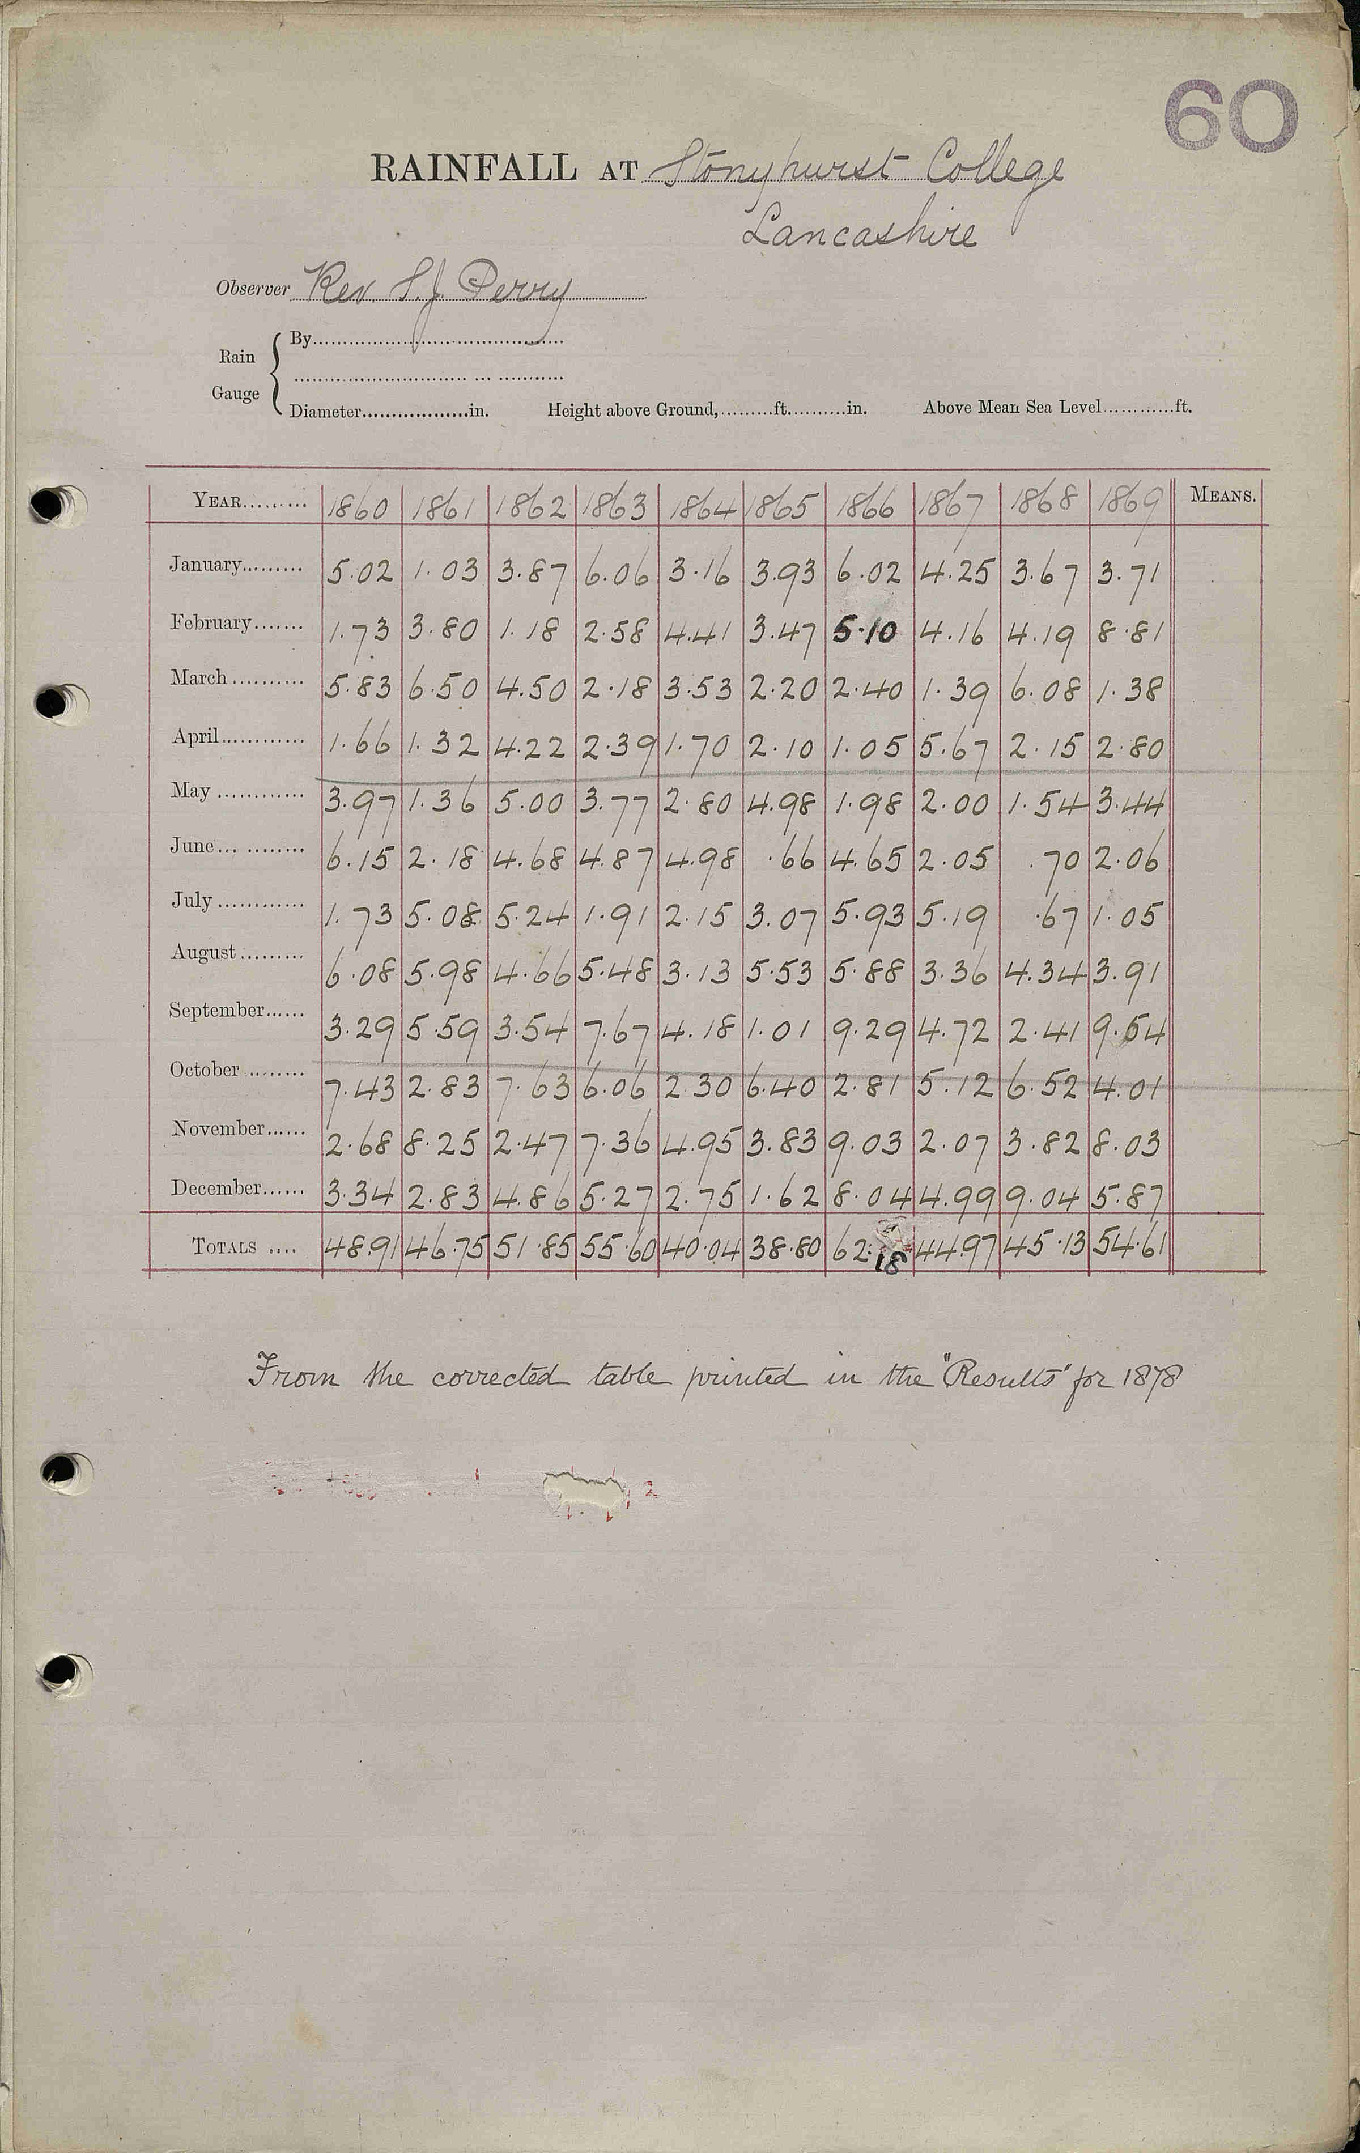 60
RAINFALL AT Stonyhurst College
Lancashire
Observer Rev. S. J. Perry
Rain Gauge { By
Diameter in. Height above Ground, ft. in. Above Mean Sea Level ft.
YEAR 1860 1861 1862 1863 1864 1865 1866 1867 1868 1869 MEANS.
January 5.02 1.03 3.87 6.06 3.16 3.93 6.02 4.25 3.67 3.71
February 1.73 3.80 1.18 2.58 4.41 3.47 5.10 4.16 4.19 8.81
March 5.83 6.50 4.50 2.18 3.53 2.20 2.40 1.39 6.08 1.38
April 1.66 1.32 4.22 2.39 1.70 2.10 1.05 5.67 2.15 2.80
May 3.97 1.36 5.00 3.77 2.80 4.98 1.98 2.00 1.54 3.44
June 6.15 2.18 4.68 4.87 4.98 .66 4.65 2.05 .70 2.06
July 1.73 5.08 5.24 1.91 2.15 3.07 5.93 5.19 .67 1.05
August 6.08 5.98 4.66 5.48 3.13 5.53 5.88 3.36 4.34 3.91
September 3.29 5.59 3.54 7.67 4.18 1.01 9.29 4.72 2.41 9.54
October 7.43 2.83 7.63 6.06 2.30 6.40 2.81 5.12 6.52 4.01
November 2.68 8.25 2.47 7.36 4.95 3.83 9.03 2.07 3.82 8.03
December 3.34 2.83 4.86 5.27 2.75 1.62 8.04 4.99 9.04 5.87
TOTALS 48.91 46.75 51.85 55.60 40.04 38.80 62.18 44.97 45.13 54.61
From the corrected table printed in the "Results" for 1878